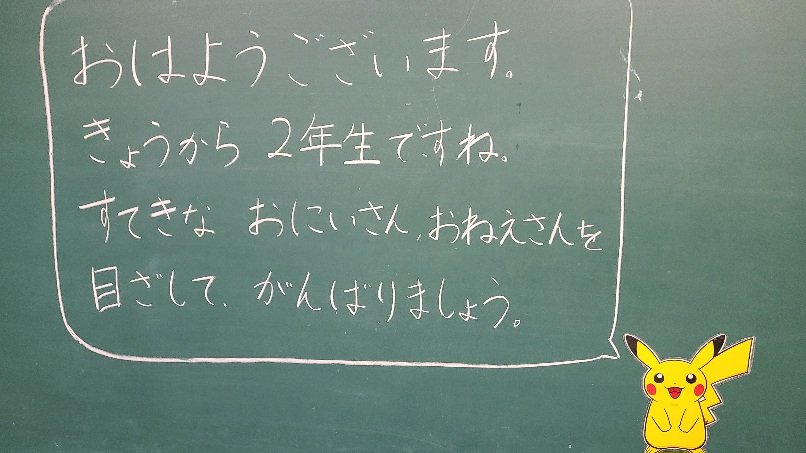 おはようございます。
きょうから 2年生ですね。
すてきな おにいさん、おねえさんを
目ざして、がんばりましょう。